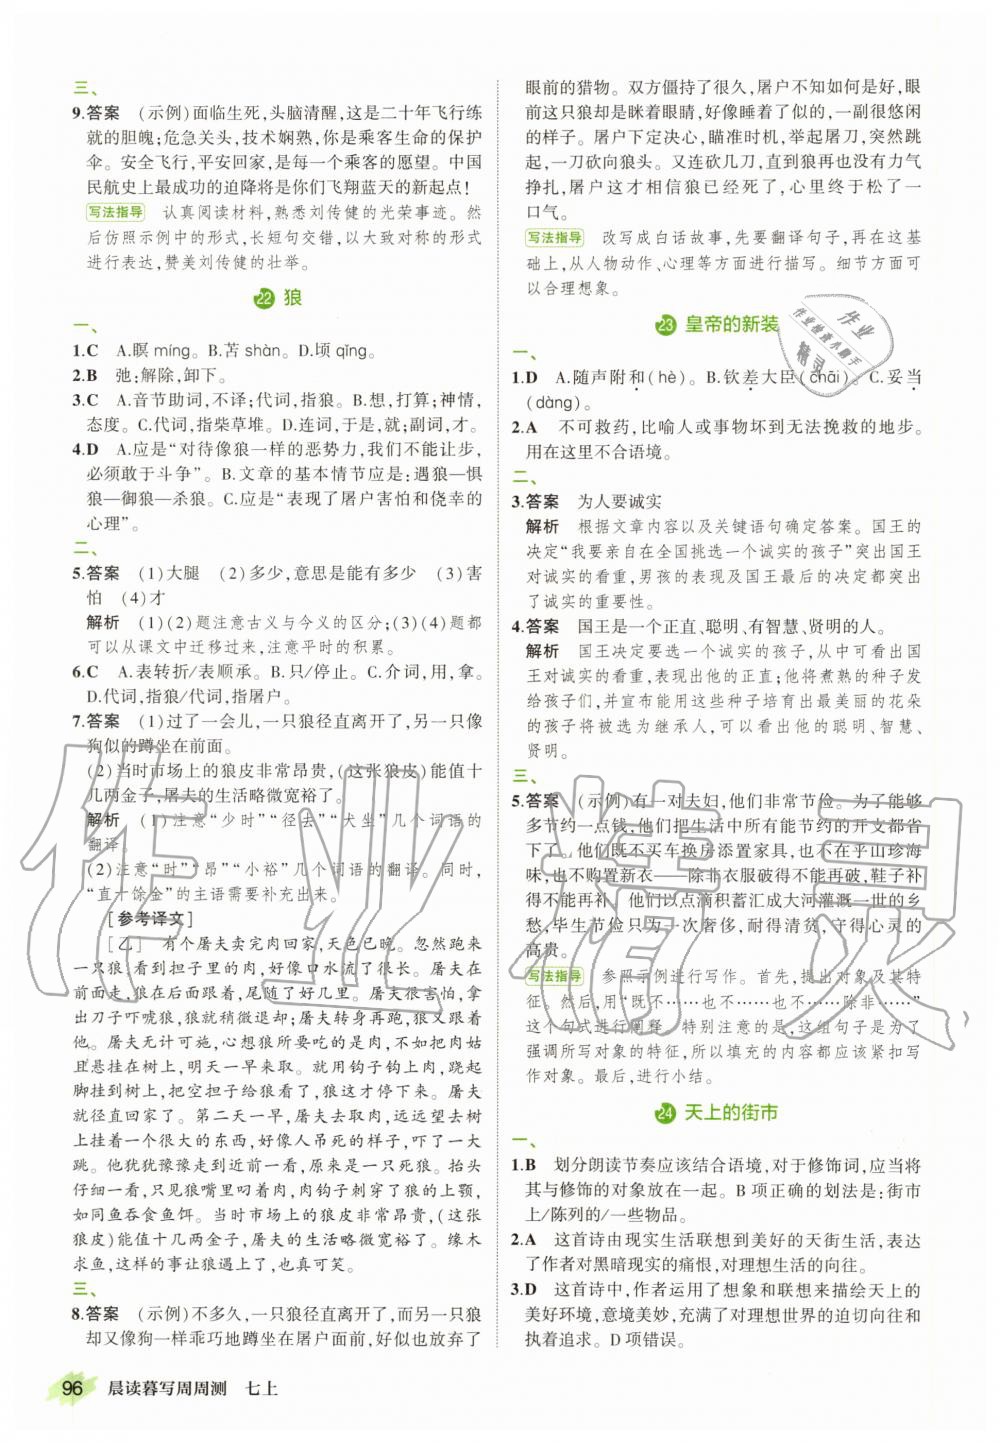 三、
9.答案　(示例)面临生死,头脑清醒,这是二十年飞行练
就的胆魄;危急关头,技术娴熟,你是乘客生命的保护
伞。安全飞行,平安回家,是每一个乘客的愿望。中国
民航史上最成功的迫降将是你们飞翔蓝天的新起点!
写法指导　认真阅读材料,熟悉刘传健的光荣事迹。然
后仿照示例中的形式,长短句交错,以大致对称的形式
进行表达,赞美刘传健的壮举。
22 狼
一、
1.C　A.瞑 míng。B.苫 shàn。D.顷 qǐng。
2.B　弛:解除,卸下。
3.C　A.音节助词,不译;代词,指狼。B.想,打算;神情,
态度。C.代词,指柴草堆。D.连词,于是,就;副词,才。
4.D　A.应是“对待像狼一样的恶势力,我们不能让步,
必须敢于斗争”。B.文章的基本情节应是:遇狼—惧
狼—御狼—杀狼。C.应是“表现了屠户害怕和侥幸的
心理”。
二、
5.答案　(1)大腿　(2)多少,意思是能有多少　(3)害
怕　(4)才
解析　(1)(2)题注意古义与今义的区分;(3)(4)题都
可以从课文中迁移过来,注意平时的积累。
6.C　A.表转折/表顺承。B.只/停止。C.介词,用,拿。
D.代词,指狼/代词,指屠户。
7.答案　(1)过了一会儿,一只狼径直离开了,另一只像
狗似的蹲坐在前面。
(2)当时市场上的狼皮非常昂贵,(这张狼皮)能值十
几两金子,屠夫的生活略微宽裕了。
解析　(1)注意“少时”“径去”“犬坐”几个词语的
翻译。
(2)注意“时”“昂”“小裕”几个词语的翻译。同时,
“直十馀金”的主语需要补充出来。
[参考译文]
[乙]　有个屠夫卖完肉回家,天色已晚。忽然跑来
一只狼,看到担子里的肉,好像口水流了很长。屠夫在
前面走,狼在后面跟着,尾随了好几里。屠夫很害怕,拿
出刀子吓唬狼,狼就稍微退却;屠夫转身再走,狼又跟上
来。屠夫无计可施,心想狼所要吃的是肉,不如把肉姑
且悬挂在树上明天早晨来取。就用钩子钩上肉,踮起
脚挂到树上,把空担子给狼看,狼才这才停下来。屠夫
径直回家了。第二天一早,屠夫去取肉,远远望去树上
挂着一个很大的东西,好像人吊死的样子,吓了一大
跳。他犹犹豫豫走近一看,原来是一只死狼。抬头
仔细一看,只见狼嘴里叼着肉,肉钩子刺穿了狼的上颚,
如同鱼吞食鱼饵。当时市场上的狼皮非常昂贵,(这张
狼皮)能值十几两金子,屠夫的生活略微宽裕了。缘木
求鱼,这样的事让狼遇上了,也真可悲。
三、
8.答案　(示例)不多久,一只狼径直离开了,而另一只狼
却又像狗一样乖巧地蹲坐在屠户面前,好似也放弃了
96　晨读暮写周周测　七上
眼前的猎物。双方僵持了很久,屠户不知如何是好,眼
前这只狼却是眯着眼睛,好像睡着了似的,一副很悠闲
的样子。屠户下定决心,瞄准时机,举起屠刀,突然跳
起,一刀砍向狼头。又连砍几刀,直到狼再也没有力气
挣扎,屠户这才相信狼已经死了,心里终于松了一
口气。
写法指导　改写成白话故事,先要翻译句子,再在这基
础上,从人物动作、心理等方面进行描写。细节方面可
以合理想象。
23 皇帝的新装
一、
1.D　A.随声附和(hè)。B.钦差大臣(chāi)。C.妥当
(dàng)。
2.A　不可救药,比喻人或事物坏到无法挽救的地步。
用在这里不合语境。
二、
3.答案　为人要诚实
解析　根据文章内容以及关键语句确定答案。国王的
决定“我要亲自在全国挑选一个诚实的孩子”突出国王
对诚实的看重,男孩的表现及国王最后的决定都突出
了诚实的重要性。
4.答案　国王是一个正直、聪明、有智慧、贤明的人。
解析　国王决定要选一个诚实的孩子,从中可以看出
国王对诚实的看重,看出他的正直;他将煮熟的种子发
给孩子们,并宣布能用这些种子培育出最美丽的花朵
的孩子将被选为继承人,可以看出他的聪明、智慧、
贤明。
三、
5.答案　(示例)有一对夫妇,他们非常节俭。为了能够
多节约一点钱,他们把生活中所有能节约的开支都省
下了。他们既不买车换房添置家具,也不在乎山珍海
味,也不购置新衣——除非衣服破得不能再破,鞋子补
得不能再补　他们以点滴积蓄汇成大河灌溉一世的乡
愁,毕生节俭只为一次奢侈,耐得住清贫,守得心灵的
高贵。
写法指导　参照示例进行写作。首先,提出对象及其特
征。然后,用“既不……也不……也不……除非……”
这个句式进行阐释。特别注意的是,这组句子是为了
强调所写对象的特征,所以填充的内容都应该紧扣写
作对象。最后,进行小结。
24 天上的街市
一、
1.B　划分朗读节奏应该结合语境,对于修饰词,应当将
其与修饰的对象放在一起。B 项正确的划法是:街市
上/陈列的/一些物品。
2.A　这首诗由现实生活联想到美好的天街生活,表达
了作者对黑暗现实的痛恨,对理想生活的向往。
3.D　这首诗中,作者运用了想象和联想来描绘天上的
美好环境,意境美妙,充满了对理想世界的迫切向往和
执着追求。D 项错误。
作业
作业检查小助手
精灵
作业精灵